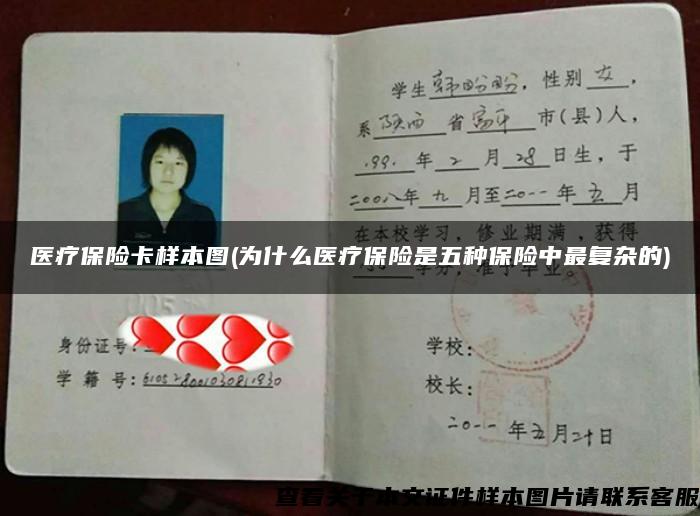 学生韩盼盼,性别女,
系陕西省富平市(县)人,
1991年2月28日生,于
二00八年九月至二0一一年五月
在本校学习,修业期满,获得
医疗保险卡样本图(为什么医疗保险是五种保险中最复杂的)
学分,准予毕业。
身份证号:
学籍号:610528001030811930
学校:
校长:
二0一一年五月二十日
查看关于本文证件样本图片请联系客服